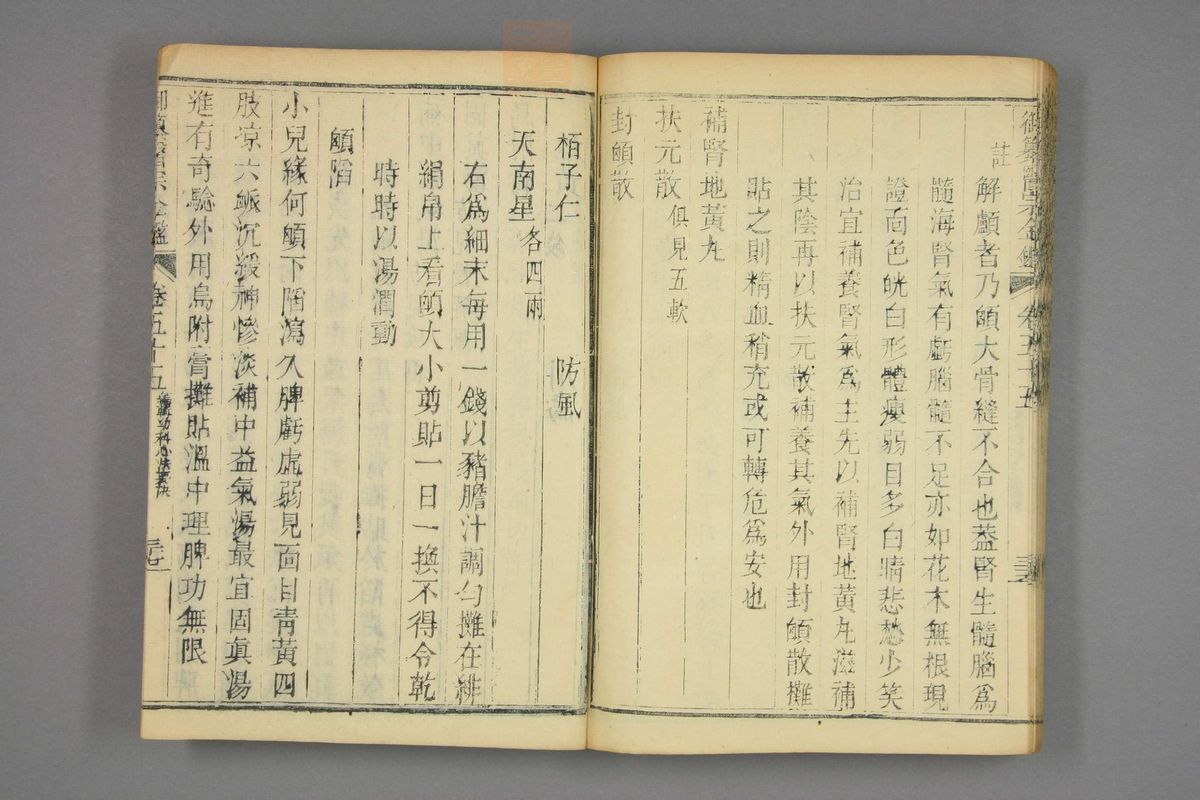 御纂醫宗金鑑 卷五十五
註
解顱者乃頠大骨縫不合也蓋腎生髓腦為
髓海腎氣有虧腦髓不足亦如花木無根現
證面色㿠白形體瘦弱目多白睛悲愁少笑
治宜補養腎氣為主先以補腎地黃丸滋補
其陰再以扶元散補養其氣外用封顖散攤
貼之則精血稍充或可轉危為安也
補腎地黃丸
扶元散 俱見五軟
封顖散
栢子仁 防風
天南星 各四兩
右為細末每用一錢以豬膽汁調勻攤在緋
絹帛上看顖大小剪貼一日一換不得令乾
時時以湯潤動
顖陷
小兒緣何顖下陷瀉久脾虧虛弱見面目青黃四
肢凉六脈沉緩神慘淡補中益氣湯最宜固真湯
進有奇驗外用烏附膏攤貼溫中理脾功無限
御纂醫宗金鑑 卷五十五 編輯幼科心法要訣